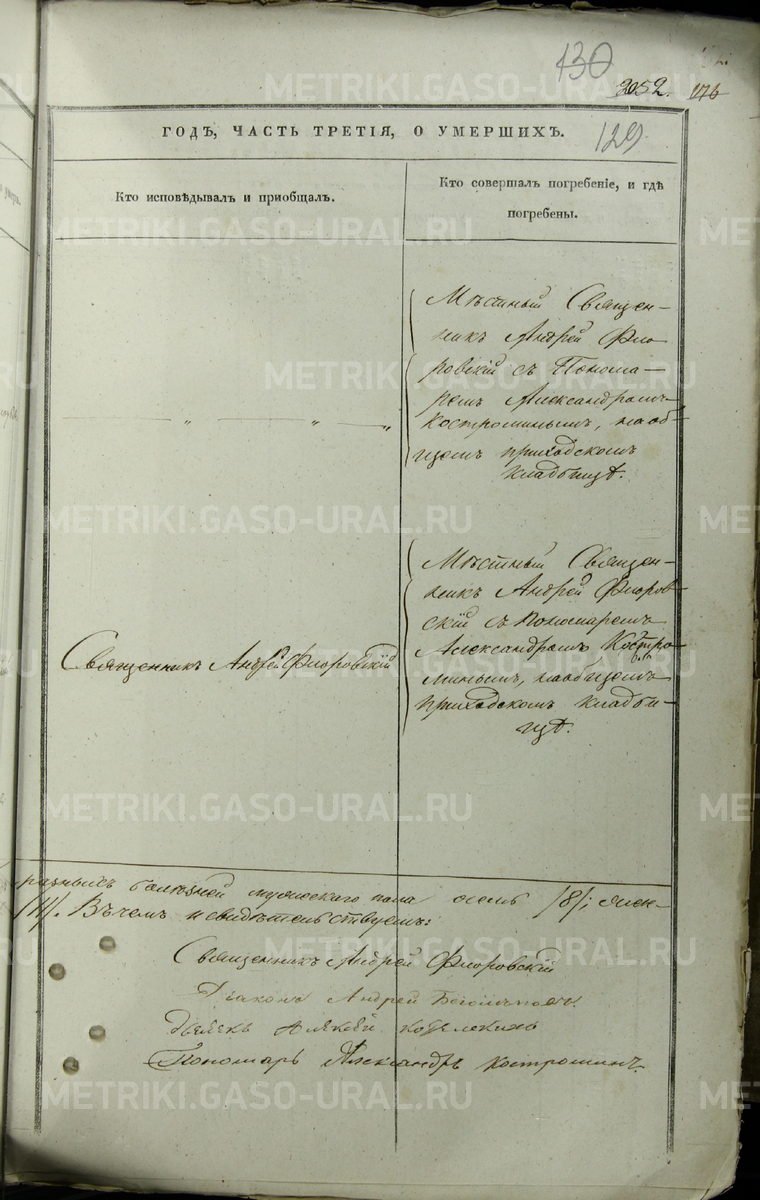 130
3052. 176
ГОДЪ, ЧАСТЬ ТРЕТІЯ, О УМЕРШИХЪ.
129
Кто исповѣдывалъ и пріобщалъ.
Кто совершалъ погребеніе, и гдѣ
погребены.
Мѣстный Священ-
никъ Андрей Фло
ровскій съ Понома-
ремъ Александромъ
Костроминымъ, на об-
щемъ приходскомъ
кладбищѣ.
Мѣстный Священ-
никъ Андрей Флоров-
скій съ Пономаремъ
Александромъ Костро
минымъ, на общемъ
приходскомъ кладби-
щѣ.
Священникъ Андрей Флоровскій
разныхъ болѣзней мужескаго пола осемь /8/; жен-
/11/. Въ чемъ и свидѣтельствуемъ:
Священникъ Андрей Флоровскій
Діаконъ Андрей
Дьячекъ
Пономарь Александръ Костроминъ.
METRIKI.GASO-URAL.RU